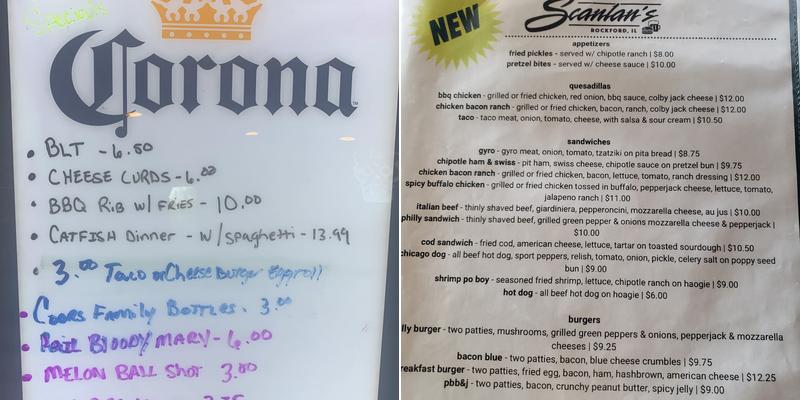 Specials
Corona
• BLT - 6.50
• CHEESE CURDS - 6.00
• BBQ Rib w/ FRIES - 10.00
• CATFISH Dinner - w/ spaghetti - 13.99
• 3.00 Taco or Cheese Burger Eggroll
• Coors Family Bottles. 3.00
• BLOODY MARY - 6.00
• MELON BALL SHOT 3.00
NEW
Scanlan's
ROCKFORD, IL
appetizers
fried pickles - served w/ chipotle ranch | $8.00
pretzel bites - served w/ cheese sauce | $10.00
quesadillas
bbq chicken - grilled or fried chicken, red onion, bbq sauce, colby jack cheese | $12.00
chicken bacon ranch - grilled or fried chicken, bacon, ranch, colby jack cheese | $12.00
taco - taco meat, onion, tomato, cheese, with salsa & sour cream | $10.50
sandwiches
gyro - gyro meat, onion, tomato, tzatziki on pita bread | $8.75
chipotle ham & swiss - pit ham, swiss cheese, chipotle sauce on pretzel bun | $9.75
chicken bacon ranch - grilled or fried chicken, bacon, lettuce, tomato, ranch dressing | $12.00
spicy buffalo chicken - grilled or fried chicken tossed in buffalo, pepperjack cheese, lettuce, tomato,
jalapeno ranch | $11.00
italian beef - thinly shaved beef, giardiniera, pepperoncini, mozzarella cheese, au jus | $10.00
philly sandwich - thinly shaved beef, grilled green pepper & onions mozzarella cheese & pepperjack |
$10.00
cod sandwich - fried cod, american cheese, lettuce, tartar on toasted sourdough | $10.50
chicago dog - all beef hot dog, sport peppers, relish, tomato, onion, pickle, celery salt on poppy seed
bun | $9.00
shrimp po boy - seasoned fried shrimp, lettuce, chipotle ranch on haogie | $9.00
hot dog - all beef hot dog on hoagie | $6.00
burgers
lly burger - two patties, mushrooms, grilled green peppers & onions, pepperjack & mozzarella
cheeses | $9.25
bacon blue - two patties, bacon, blue cheese crumbles | $9.75
reakfast burger - two patties, fried egg, bacon, ham, hashbrown, american cheese | $12.25
pbb&j - two patties, bacon, crunchy peanut butter, spicy jelly | $9.00